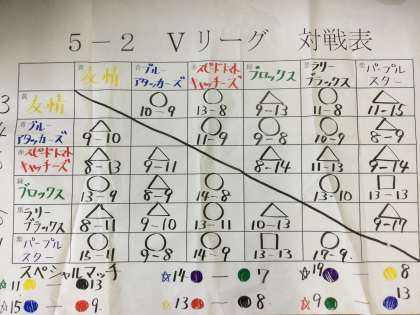 5-2 Vリーグ 対戦表
友情 ブルーアタッカーズ スピードトマトハッチーズ ブロックス ラリーブラックス パープルスター
友情 10-9 13-8 9-13 11-8 11-15
ブルー
アタッカーズ 9-10 11-9 9-8 11-9 8-9
スピードトマト
ハッチーズ 8-13 9-11 8-14 11-13 9-14
ブロックス 13-9 8-9 14-8 13-13
ラリー
ブラックス 8-11 9-11 13-11 9-17
パープル
スター 15-11 9-8 14-9 13-13
スペシャルマッチ
☆11 - 13 ☆14 - 7 ☆19 - 8
☆15 - 9 ☆13 - 8 ☆9 - 4